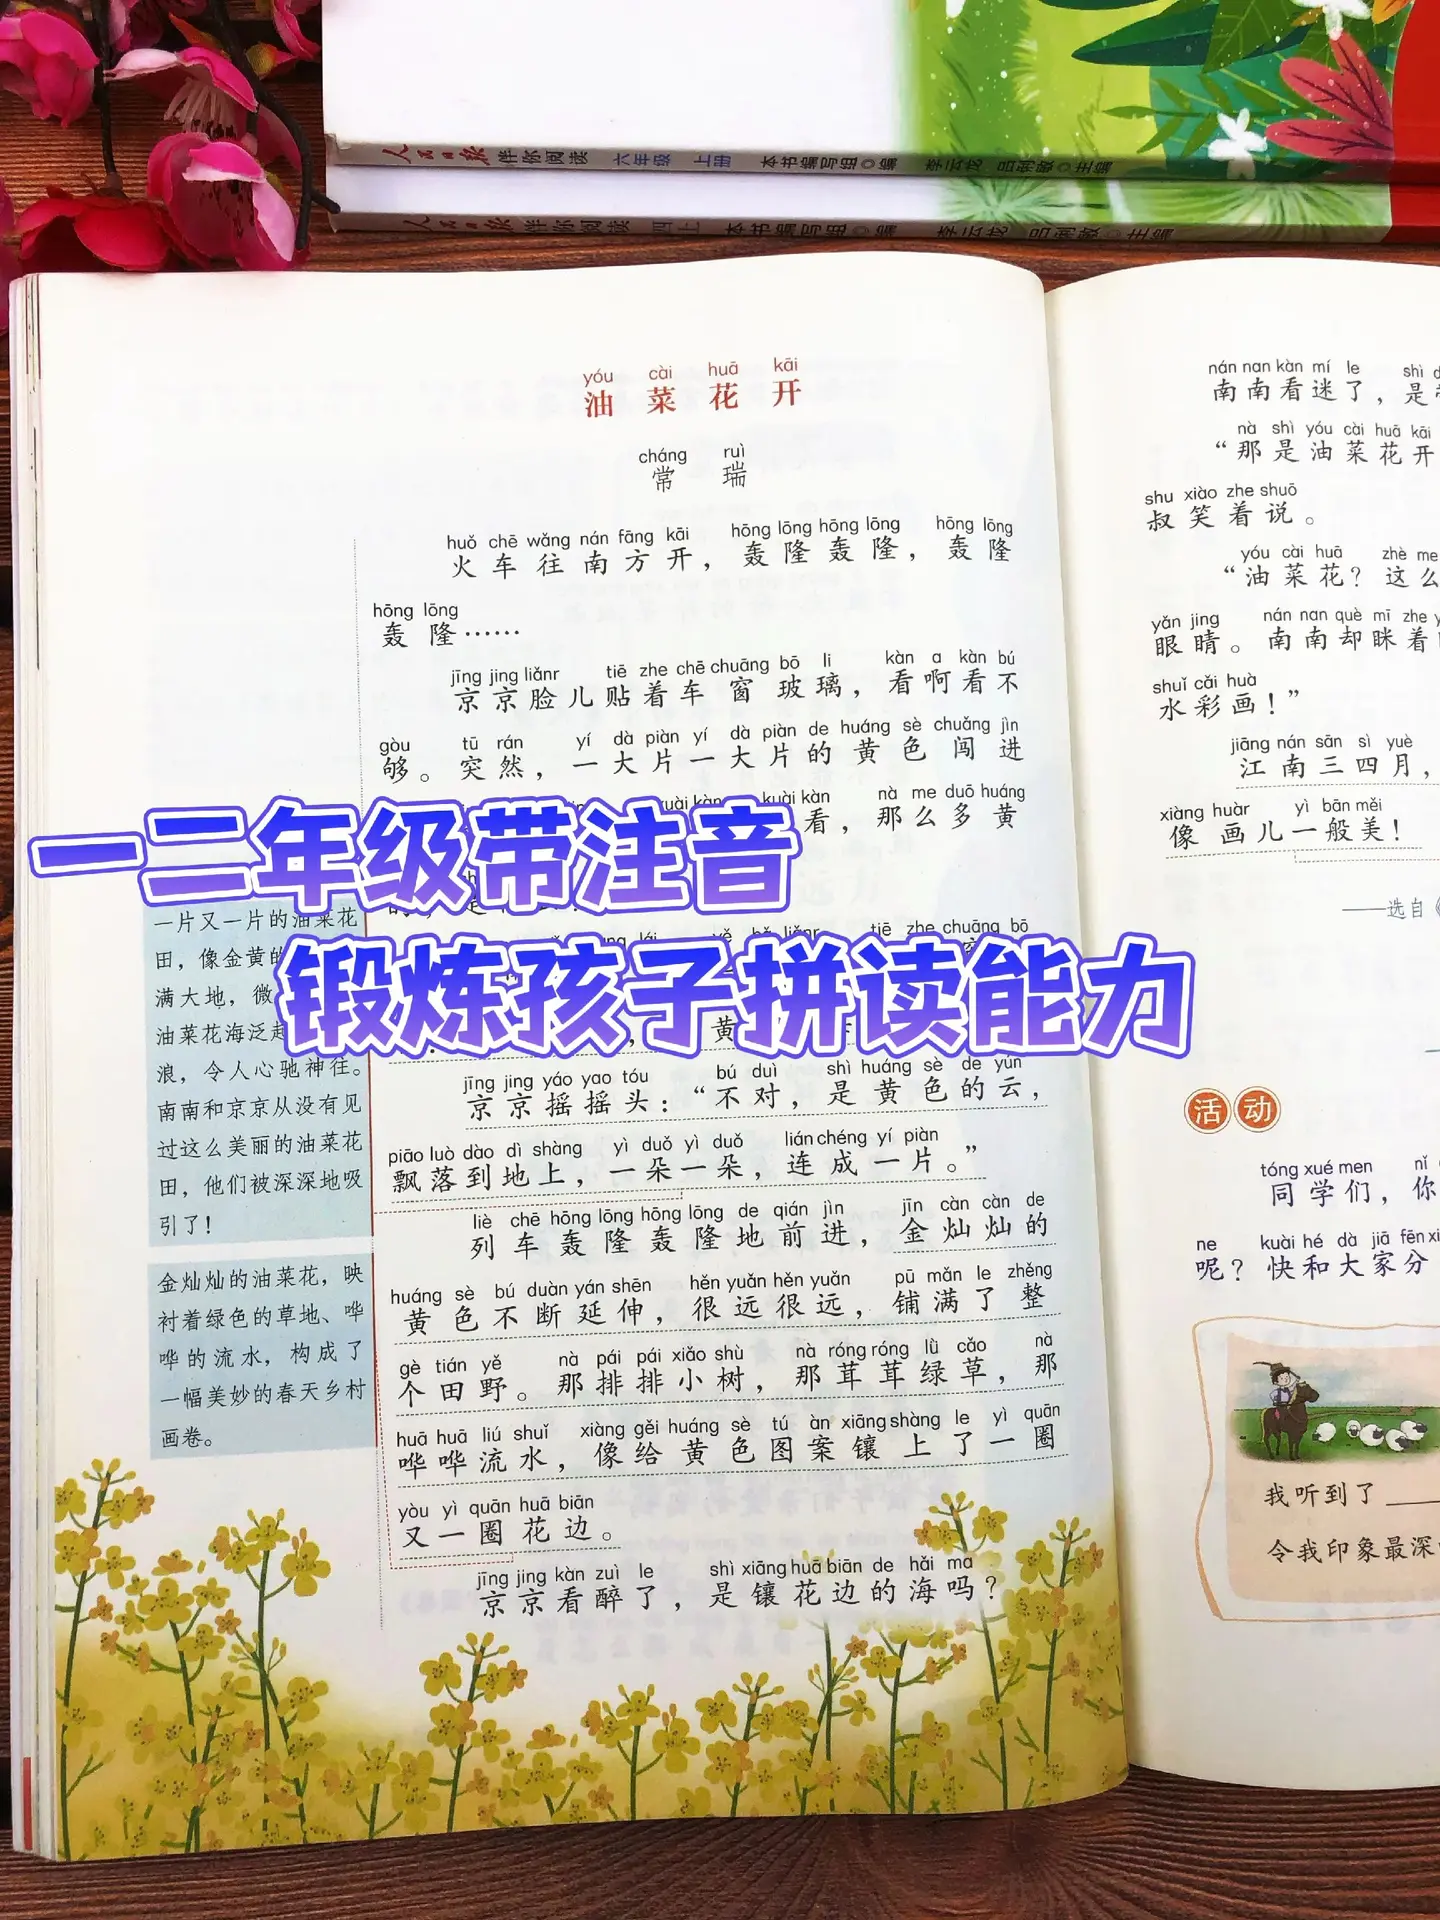 人民日报伴你阅读 六年级 上册 本书编写组◎编 李云龙 吕俐敏◎主编
人民日报伴你阅读 四上 本书编写组◎编 李云龙 吕俐敏◎主编
yóu cài huā kāi
油菜花开
cháng ruì
常 瑞
huǒ chē wǎng nán fāng kāi hōng lōng hōng lōng hōng lōng
火车往南方开，轰隆轰隆，轰隆
hōng lōng
轰隆……
jīng jing liǎnr tiē zhe chē chuāng bō li kàn a kàn bú
京京脸儿贴着车窗玻璃，看啊看不
gòu tū rán yí dà piàn yí dà piàn de huáng sè chuǎng jìn
够。突然，一大片一大片的黄色闯进
kuài kàn kuài kàn nà me duō huáng
看，那么多黄
一二年级带注音
liǎnr tiē zhe chē chuāng bō
锻炼孩子拼读能力
黄
jīng jing yáo yao tóu bú duì shì huáng sè de yún
京京摇摇头：“不对，是黄色的云，
piāo luò dào dì shàng yì duǒ yì duǒ lián chéng yí piàn
飘落到地上，一朵一朵，连成一片。”
liè chē hōng lōng hōng lōng de qián jìn jīn càn càn de
列车轰隆轰隆地前进，金灿灿的
huáng sè bú duàn yán shēn hěn yuǎn hěn yuǎn pū mǎn le zhěng
黄色不断延伸，很远很远，铺满了整
gè tián yě nà pái pái xiǎo shù nà róng róng lǜ cǎo nà
个田野。那排排小树，那茸茸绿草，那
huā huā liú shuǐ xiàng gěi huáng sè tú àn xiāng shàng le yì quān
哗哗流水，像给黄色图案镶上了一圈
yòu yì quān huā biān
又一圈花边。
jīng jing kàn zuì le shì xiāng huā biān de hǎi ma
京京看醉了，是镶花边的海吗？
一片又一片的油菜花
田，像金黄的
满大地，微
油菜花海泛起
浪，令人心驰神往。
南南和京京从没有见
过这么美丽的油菜花
田，他们被深深地吸
引了！
金灿灿的油菜花，映
衬着绿色的草地、哗
哗的流水，构成了
一幅美妙的春天乡村
画卷。
nán nan kàn mí le shì
南南看迷了，是
nà shì yóu cài huā kāi
“那是油菜花开
shu xiào zhe shuō
叔笑着说。
yóu cài huā zhè me
“油菜花？这么
yǎn jing nán nan què mī zhe
眼睛。南南却眯着
shuǐ cǎi huà
水彩画！”
jiāng nán sān sì yuè
江南三四月，
xiàng huàr yì bān měi
像画儿一般美！
——选自《
活动
tóng xué men nǐ
同学们，你
ne kuài hé dà jiā fēn
呢？快和大家分
我听到了
令我印象最深